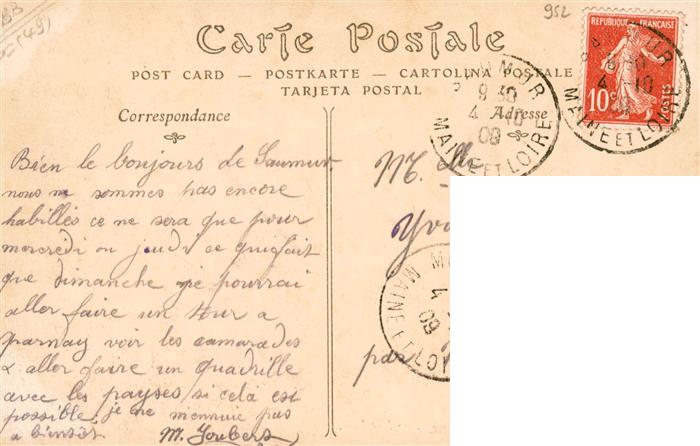 952
BB
(49)
Carte Postale
POST CARD — POSTKARTE — CARTOLINA POSTALE
TARJETA POSTAL
Correspondance
Adresse
RÉPUBLIQUE FRANÇAISE
10c
POSTES
SAUMUR
8 30
4 10
09
MAINE ET LOIRE
8 30
4 10
MAINE ET LOIRE
Bien le bonjours de Saumur
nous ne sommes pas encore
habillés ce ne sera que pour
mercredi ou jeudi ce qui fait
que dimanche je pourrai
aller faire un tour a
parnay voir les camarades
& aller faire un quadrille
avec les payses si cela est
possible, je ne mennuie pas
a bientôt. M. Joubert
Melle
Yvo
par
4
09
MAINE ET LOI